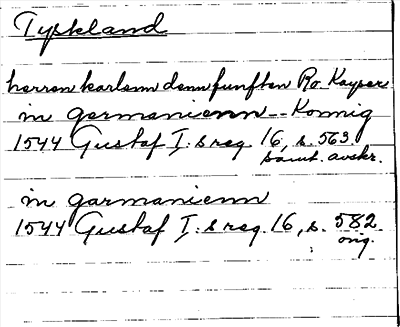 Tyskland
herren karlenn denn funften Ro. Kayser
in germanienn -- Konnig
1544 Gustaf I:s reg. 16, s. 563
samt. avskr.
in garmanienn
1544 Gustaf I:s reg. 16, s. 582
orig.